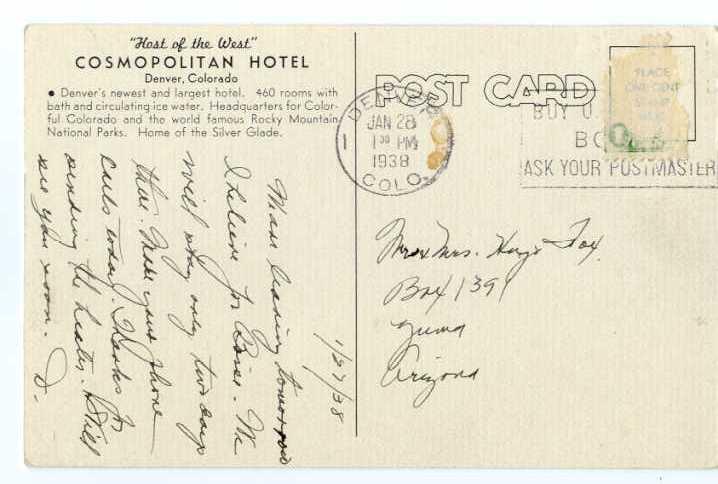 "Host of the West"
COSMOPOLITAN HOTEL
Denver, Colorado
• Denver's newest and largest hotel. 460 rooms with
bath and circulating ice water. Headquarters for Color-
ful Colorado and the world famous Rocky Mountain
National Parks. Home of the Silver Glade.
1/27/38
leaving tomorrow
I believe for We
will stay only two days
there. Make your phone
calls today. Thanks for
sending the Still
see you soon. D.
POST CARD
DENVER
JAN 28
1 30 PM
1938
COLO.
1
BUY U.
BO
ASK YOUR POSTMASTER
PLACE
ONE CENT
STAMP
HERE
Mr & Mrs. Fox
Box 1391
Yuma
Arizona